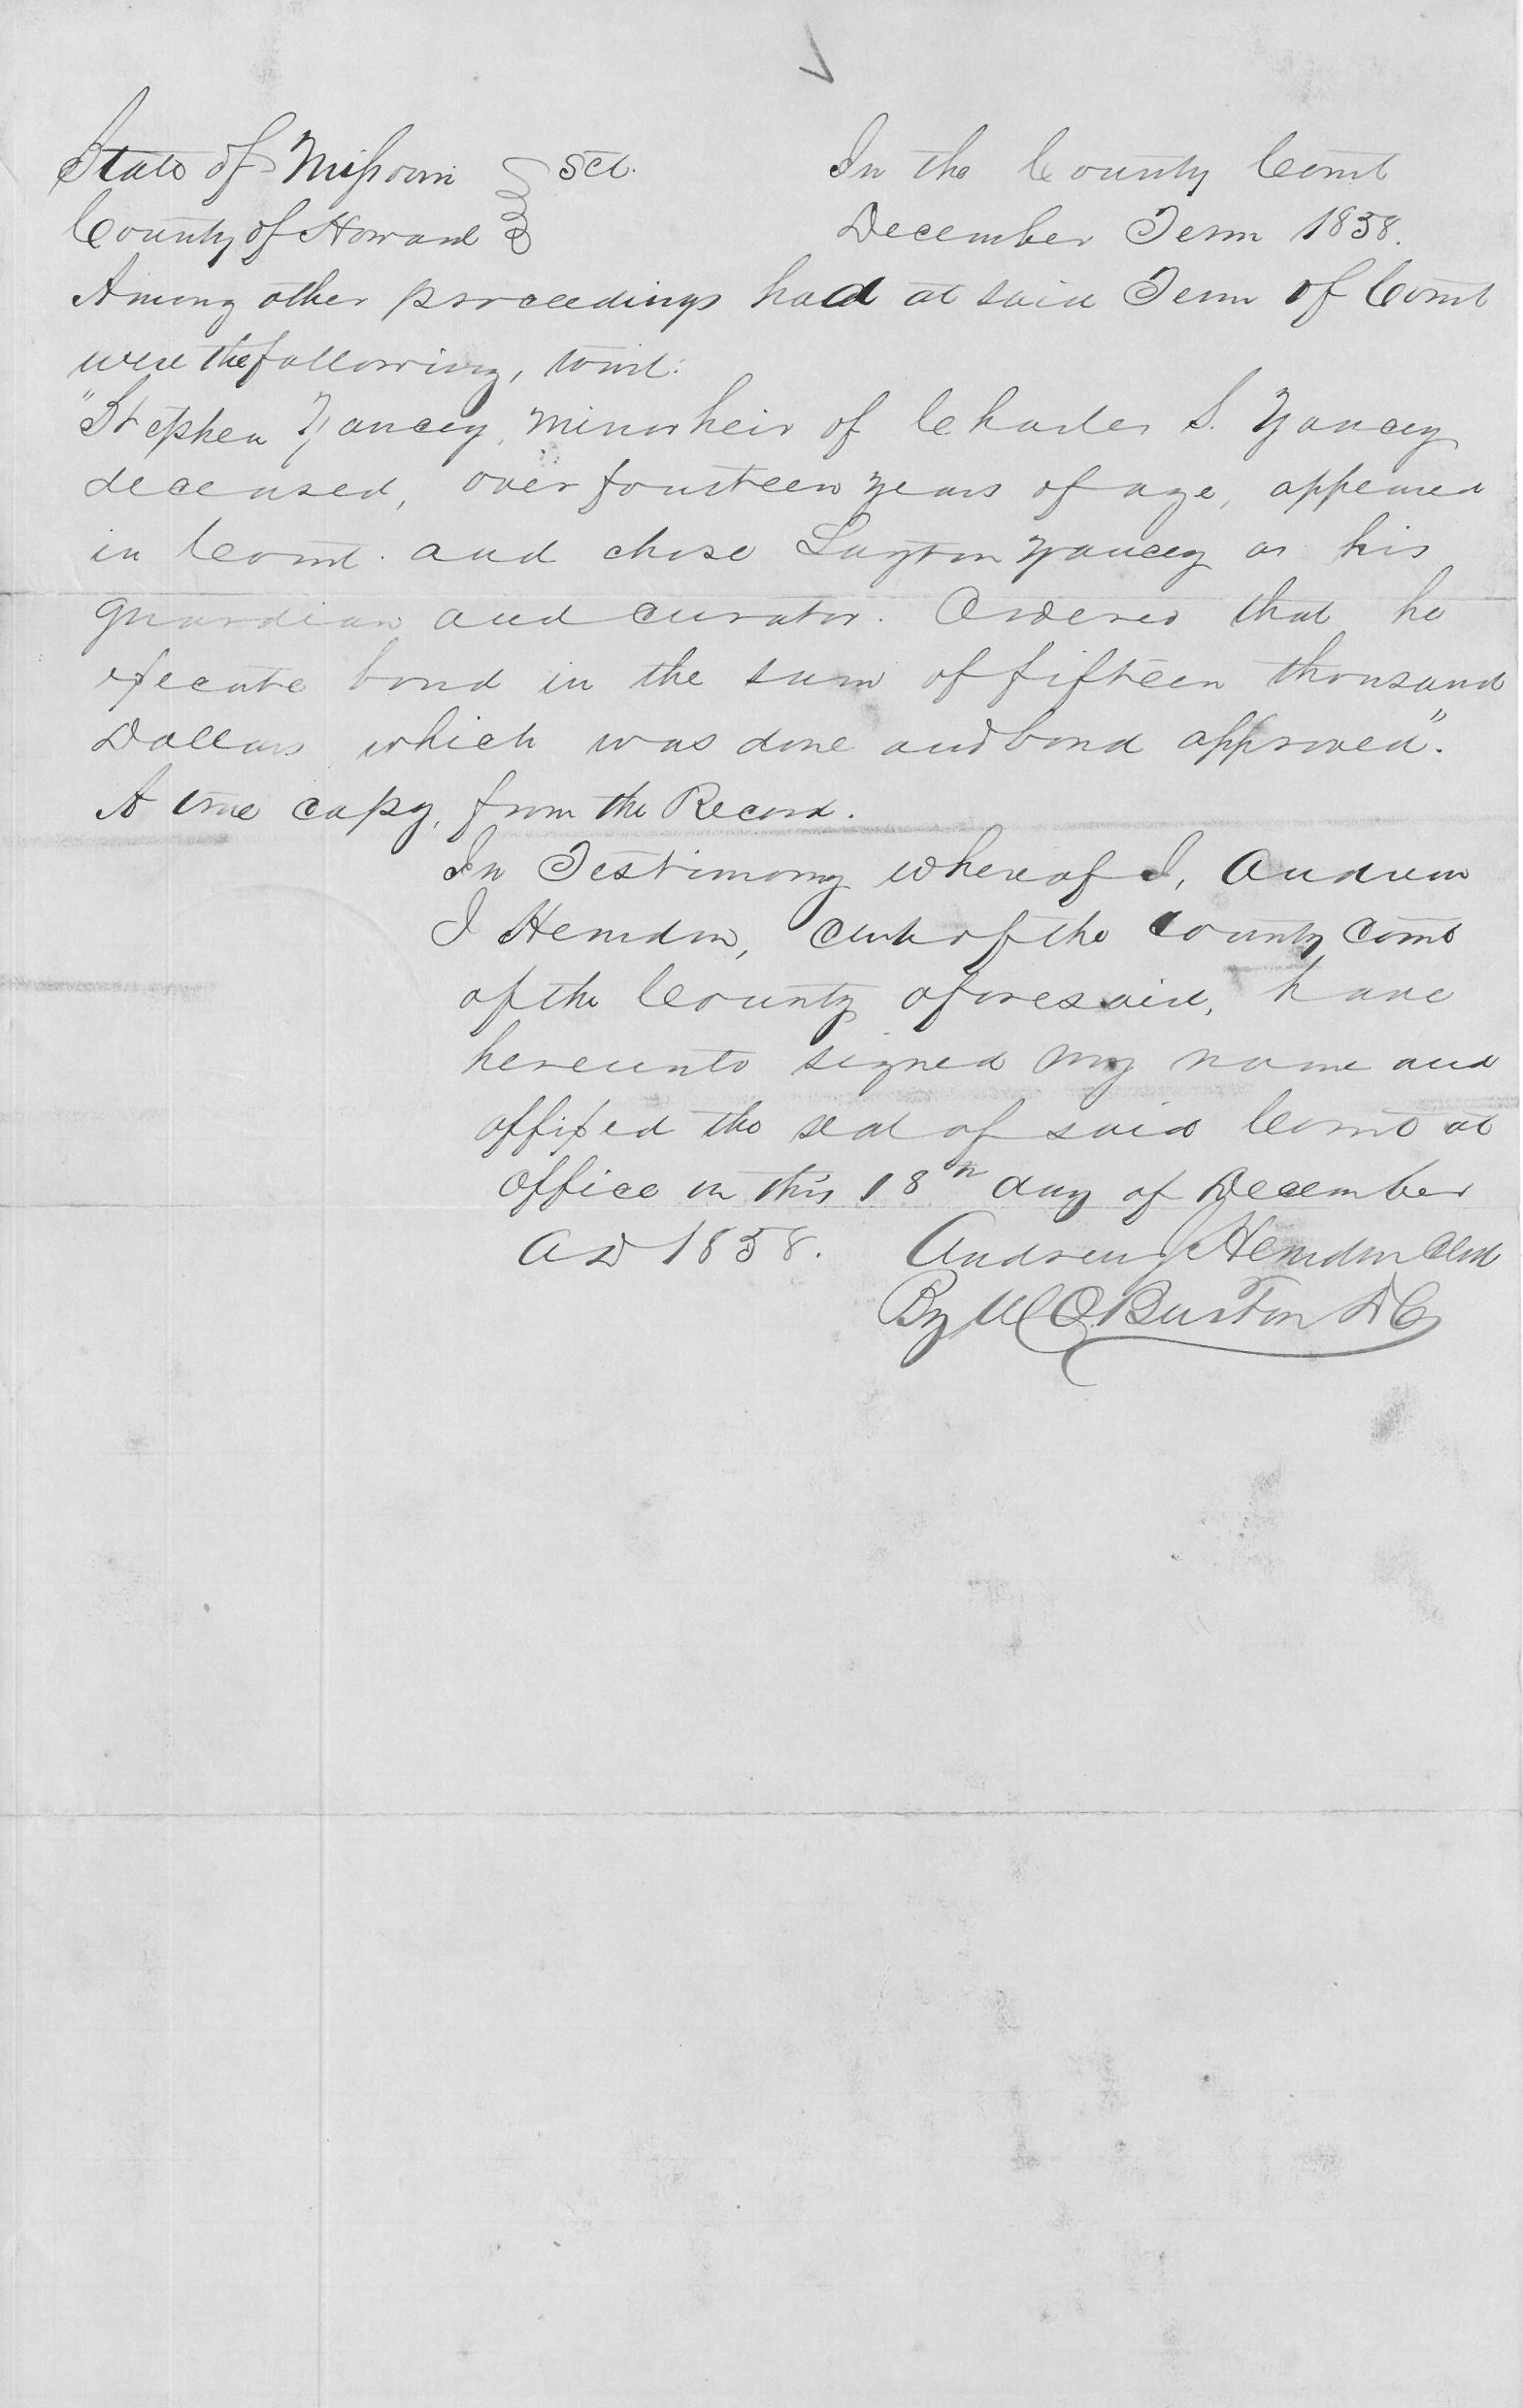 State of Missouri } Sct. In the County Court
County of Howard } December Term 1858.
Among other proceedings had at said Term of Court
were the following, towit:
"Stephen Yancey, minor heir of Charles S. Yancey
deceased, over fourteen years of age, appeared
in Court and chose Layton Yancey as his
guardian and curator. Ordered that he
execute bond in the sum of fifteen thousand
Dollars which was done and bond approved".
A true copy, from the Record.
In Testimony whereof I, Andrew
J Herndon, Clerk of the County Court
of the County aforesaid, have
hereunto signed my name and
affixed the seal of said Court at
office in this 18th day of December
AD 1858. Andrew J Herndon Clerk
By Burton DC